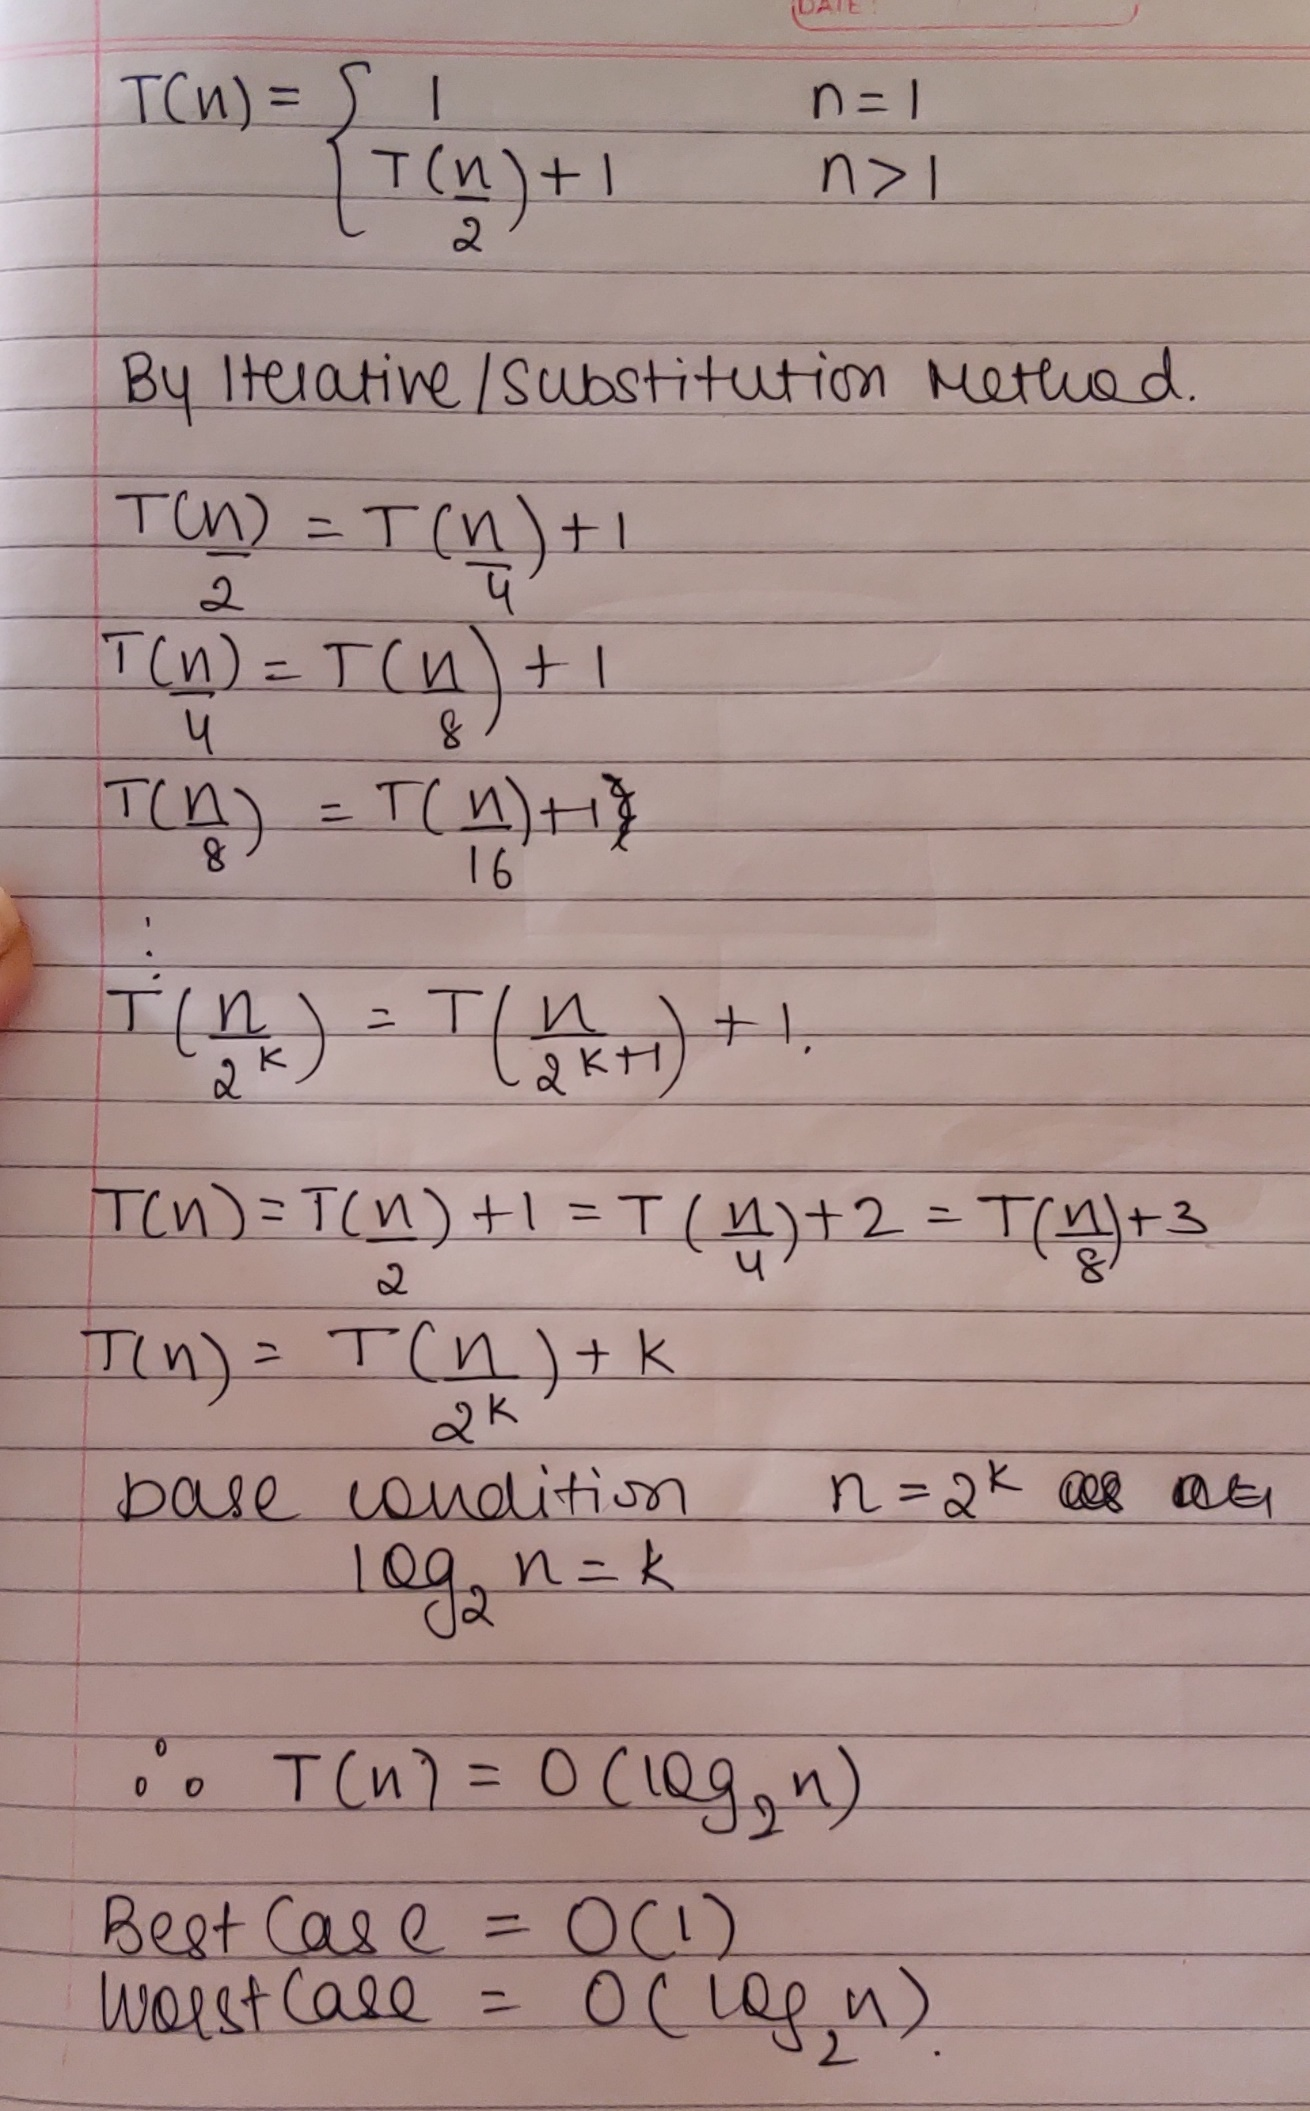 DATE:
T(n) = { 1 n=1
T(n/2)+1 n>1
By Iterative/Substitution Method.
T(n/2) = T(n/4)+1
T(n/4) = T(n/8)+1
T(n/8) = T(n/16)+1
⋮
T(n/2^k) = T(n/2^k+1)+1.
T(n)=T(n/2)+1 = T(n/4)+2 = T(n/8)+3
T(n) = T(n/2^k)+k
base condition n=2^k
log₂ n=k
∴ T(n) = O(log₂n)
Best Case = O(1)
Worst Case = O(log₂n).